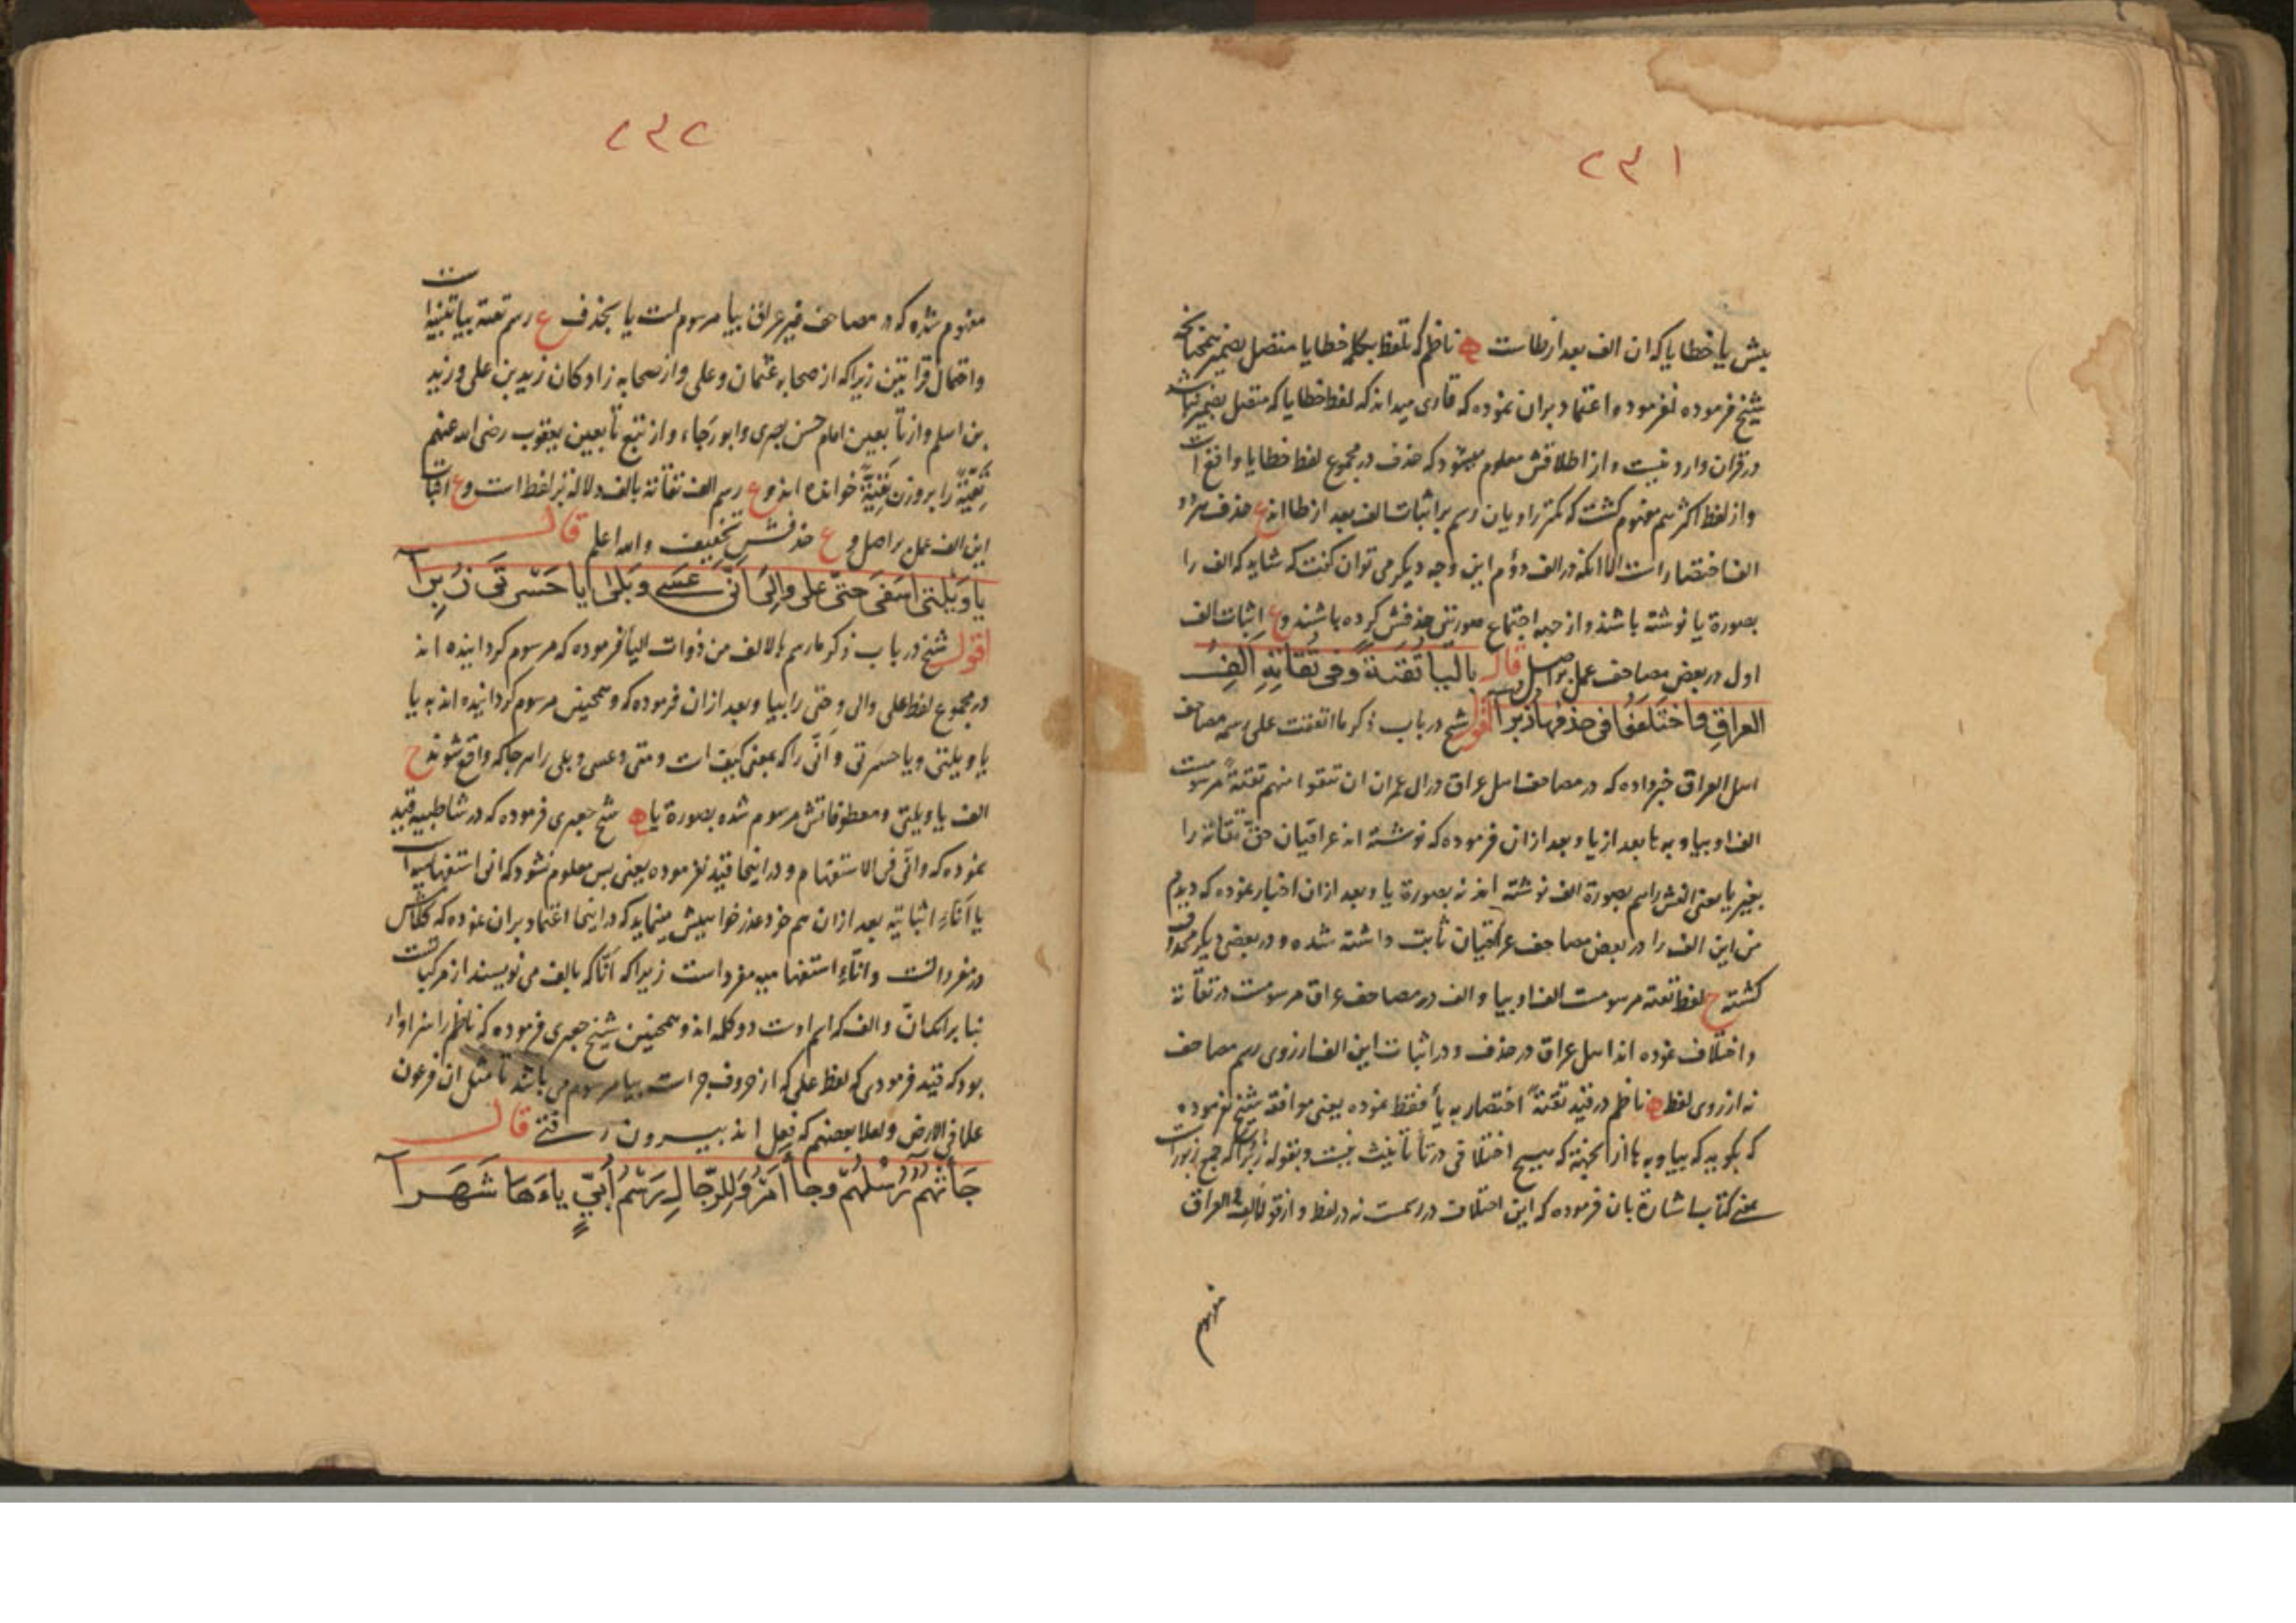 ٢٣١
بیش یا خطایا که ان الف بعد از طاست ناظم که تلفظ بکلمه خطایا متصل بضمیر همچنانکه
شیخ فرموده نفرمود و اعتماد بران نموده که قاری میداند که لفظ خطایا که متصل بضمیر نباشد
در قران وارد نیست و از اطلاقش معلوم میشود که حذف در مجموع لفظ خطایا واقع است
و از لفظ اکثرهم مفهوم کشت که کمتر راویان رسم بر اثبات الف بعد از طا اند ع حذف هر دو
الف اختصار است الا انکه در الف دوم این وجه دیکر می توان کفت که شاید که الف را
بصورة یا نوشته باشند و از جهه اجتماع صورتین حذفش کرده باشند و ع اثبات الف
اول در بعض مصاحف عمل بر اصل قال بالیا تُقٰىةً وفی تُقَاتِهِ اَلِفُ
العراقِ واختَلَفُوا فی حذفها زُبُرا اقول شیخ در باب ذکر ما اتفقت علی رسمه مصاحف
اهل العراق خبر داده که در مصاحف اهل عراق در ال عمران ان تتقوا منهم تقیةً مرسومست
الف او بیا و به ها بعد از یا و بعد ازان فرموده که نوشته اند عراقیان حق تقاته را
بغیر یا یعنی الفش را هم بصورة الف نوشته اند نه بصورة یا و بعد ازان اخبار نموده که دیدم
من این الف را در بعض مصاحف عراقیان ثابت داشته شده و در بعضی دیکر محذوف
کشته ح لفظ تقیة مرسومست الف او بیا و الف در مصاحف عراق مرسومست در تقاته
و اختلاف نموده اند اهل عراق در حذف و در اثبات این الف از روی رسم مصاحف
نه از روی لفظ ناظم در قید تقیةً اختصار به یا فقط نموده یعنی موافقه شیخ نفرموده
که بکوید که بیا و به ها از انجهة که هیچ اختلافی در تا تانیث نیست و بقوله زبرا که جمع زبورست
بمعنے کتاب اشارة بان فرموده که این اختلاف در رسمست نه در لفظ و از قوله الف العراق
مفهوم
٢٣٢
مفهوم شده که در مصاحف غیر عراقی بیا مرسوم است یا بحذف ع رسم تقیة بیا تنبیه است
و احتمال قراءتین زیرا که از صحابه عثمان و علی و از صحابه زادکان زید بن علی و زید
بن اسلم و از تابعین امام حسن بصری و ابو رجاء و از تبع تابعین یعقوب رضی الله عنهم
تَقِیَّةً را بر وزن غَنِیَّةً خوانده اند و ع رسم الف تقاته بالف دلالة بر لفظ است و ع اثبات
این الف عمل بر اصل و ع حذفش تخفیف و الله اعلم قال
یا وَیْلَتٰى اَسَفَى حَتّٰى عَلى وإلى اَنّٰى عَسَى وَبَلٰى یا حَسْرتَى زُبِرا
اقول شیخ در باب ذکر ما رسم بالالف من ذوات الیا فرموده که مرسوم کردانیده اند
در مجموع لفظ علی و الی و حتی را بیا و بعد ازان فرموده که و همچنین مرسوم کردانیده اند به یا
یا ویلتی و یا حسرتی و انّی را که بمعنی کیف است و متی و عسی و بلی را هر جا که واقع شوند ح
الف یا ویلتی و معطوفاتش مرسوم شده بصورة یا شیخ جعبری فرموده که در شاطبیه قید
نموده که و انّی فی الاستفهام و در اینجا قید نفرموده یعنی پس معلوم نشود که انی استفهامیه است
یا اَنّا اثباتیه بعد ازان هم خود عذر خواهیش مینماید که در اینجا اعتماد بران نموده که کلامش
در مفرد است و انّی استفهامیه مفرد است زیرا که انّا که بالف می نویسند از مرکباتست
بنا بر انکه انّ و الف که اسم اوست دو کلمه اند و همچنین شیخ جعبری فرموده که ناظم را سزاوار
بود که قید فرمودی که لفظ علی که از حروف جر است بیا مرسوم می باشد تا مثل ان فرعون
علا فی الارض و لعلا بعضهم که فعل اند بیرون رفتے قال
جَاءتْهُم رُسُلُهُم وجا أَمْرُ وَلِلرّجَالِ رَسْمُ أُبَيٍّ یاءَها شَهَرا